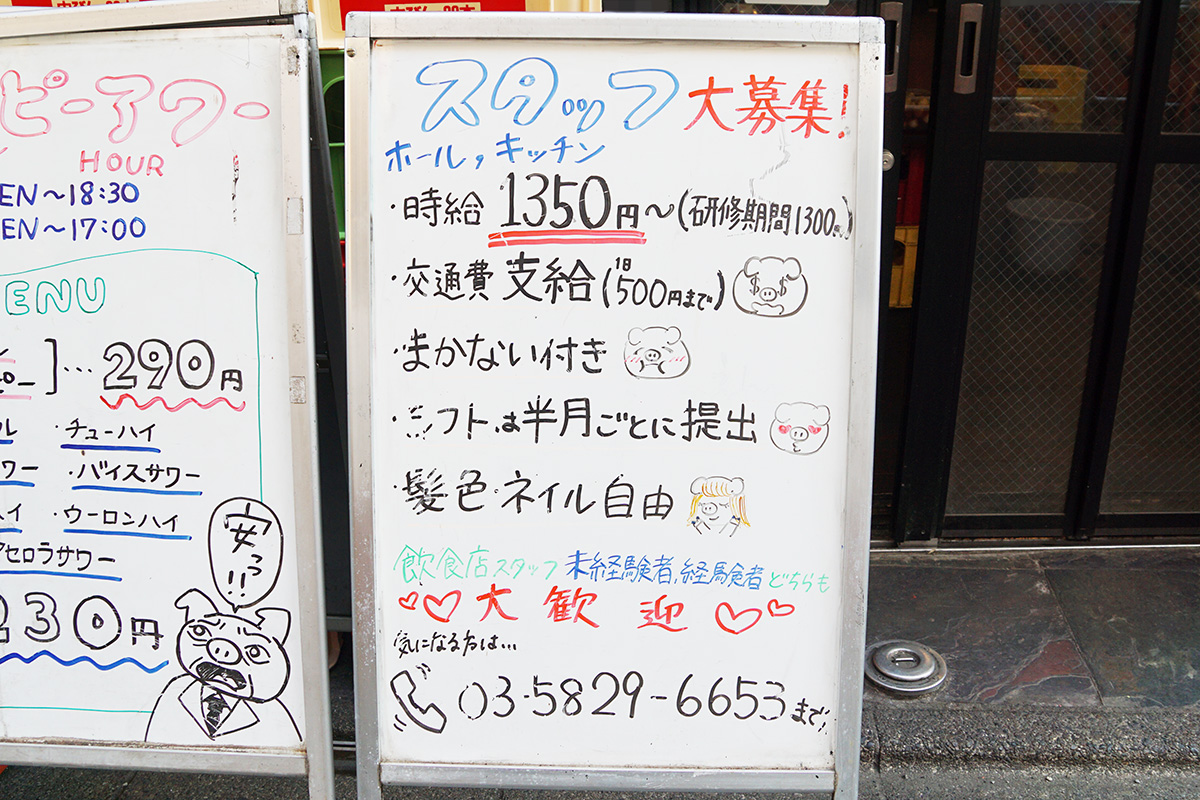 ピーアワー
HOUR
EN～18:30
EN～17:00
ENU
]…290円
・チューハイ
ワー ・バイスサワー
・ウーロンハイ
アセロラサワー
230円
安っ!!
スタッフ 大募集!
ホール,キッチン
・時給 1350円～(研修期間1300円)
・交通費 支給(1日500円まで)
・まかない付き
・シフトは半月ごとに提出
・髪色 ネイル自由
飲食店スタッフ 未経験者,経験者 どちらも
大歓迎
気になる方は…
03-5829-6653まで!